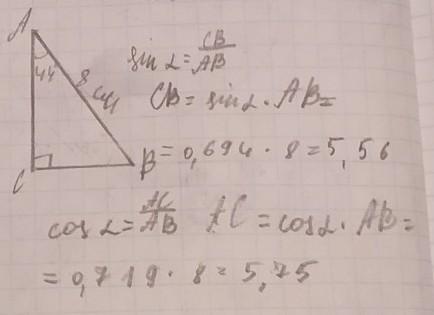 A
44
8 см
C
B
sin α = CB/AB
CB = sin α · AB =
= 0,694 · 8 = 5,56
cos α = AC/AB AC = cos α · AB =
= 0,719 · 8 = 5,75